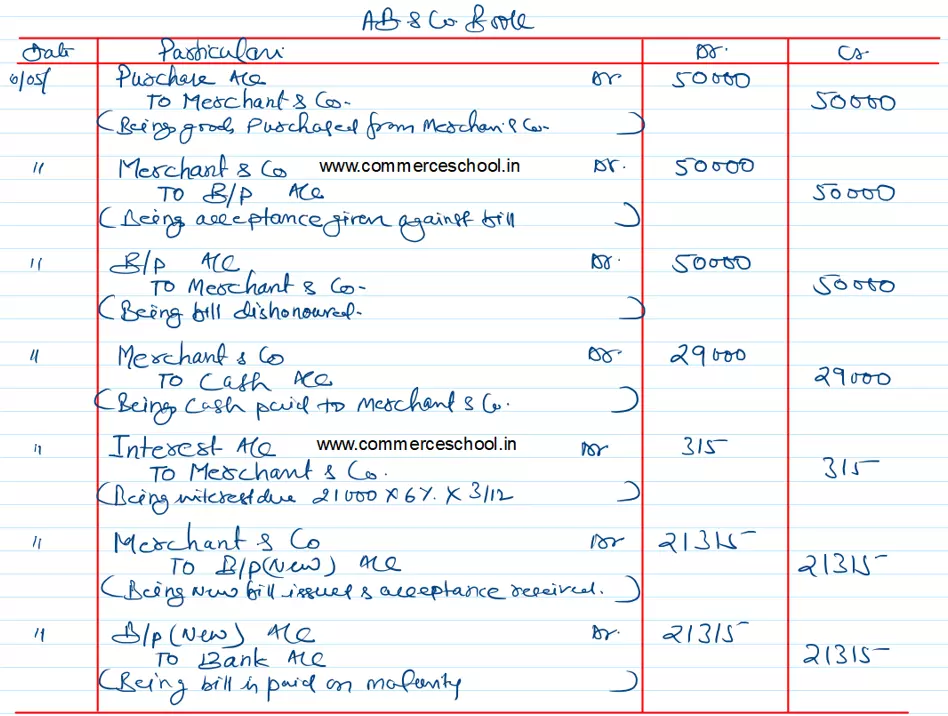 AB & Co. Book
Date Particulars Dr. Cr.
Purchase A/C Dr 50000
To Merchant & Co. 50000
(Being goods purchased from Merchant & Co. )
" Merchant & Co www.commerceschool.in Dr. 50000
To B/P A/C 50000
(Being acceptance given against bill )
" B/P A/C Dr. 50000
To Merchant & Co. 50000
(Being bill dishonoured. )
" Merchant & Co Dr. 29000
To Cash A/C 29000
(Being Cash paid to Merchant & Co. )
" Interest A/C www.commerceschool.in Dr 315
To Merchant & Co. 315
(Being interest due 21000 X 6%. X 3/12 )
" Merchant & Co Dr 21315
To B/P (New) A/C 21315
(Being New bill issued & acceptance received. )
" B/P (New) A/C Dr. 21315
To Bank A/C 21315
(Being bill is paid on maturity )